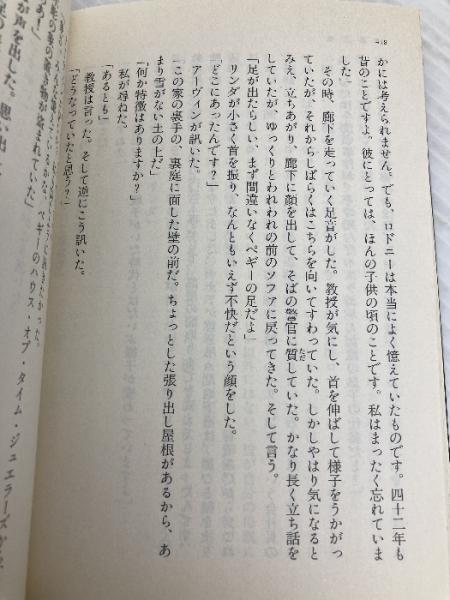 218
かには考えられません。でも、ロドニーは本当によく憶えていたものです。四十二年も
昔のことですよ。彼にとっては、ほんの子供の頃のことです。私はまったく忘れていま
した」
その時、廊下を走っていく足音がした。教授が気にし、首を伸ばして様子をうかがっ
ていたが、それからしばらくはこちらを向いてすわっていた。しかしやはり気になると
みえ、立ちあがり、廊下に顔を出して、そばの警官に質していた。かなり長く立ち話を
していたが、ゆっくりとわれわれの前のソファに戻ってきた。そして言う。
「足が出たらしい、まず間違いなくペギーの足だよ」
リンダが小さく首を振り、なんともいえず不快だという顔をした。
「どこにあったんです？」
アーヴィンが訊いた。
「この家の裏手の、裏庭に面した壁の前だ。ちょっとした張り出し屋根があるから、あ
まり雪がない土の上だ」
「何か特徴はありますか？」
私が尋ねた。
「あるとも」
教授は言った。そして逆にこう訊いた。
「どうなっていたと思う？」
ペギーのハウス・オブ・タイム・ジュエラーズ
が盗まれていた」
が声を出した。思い出